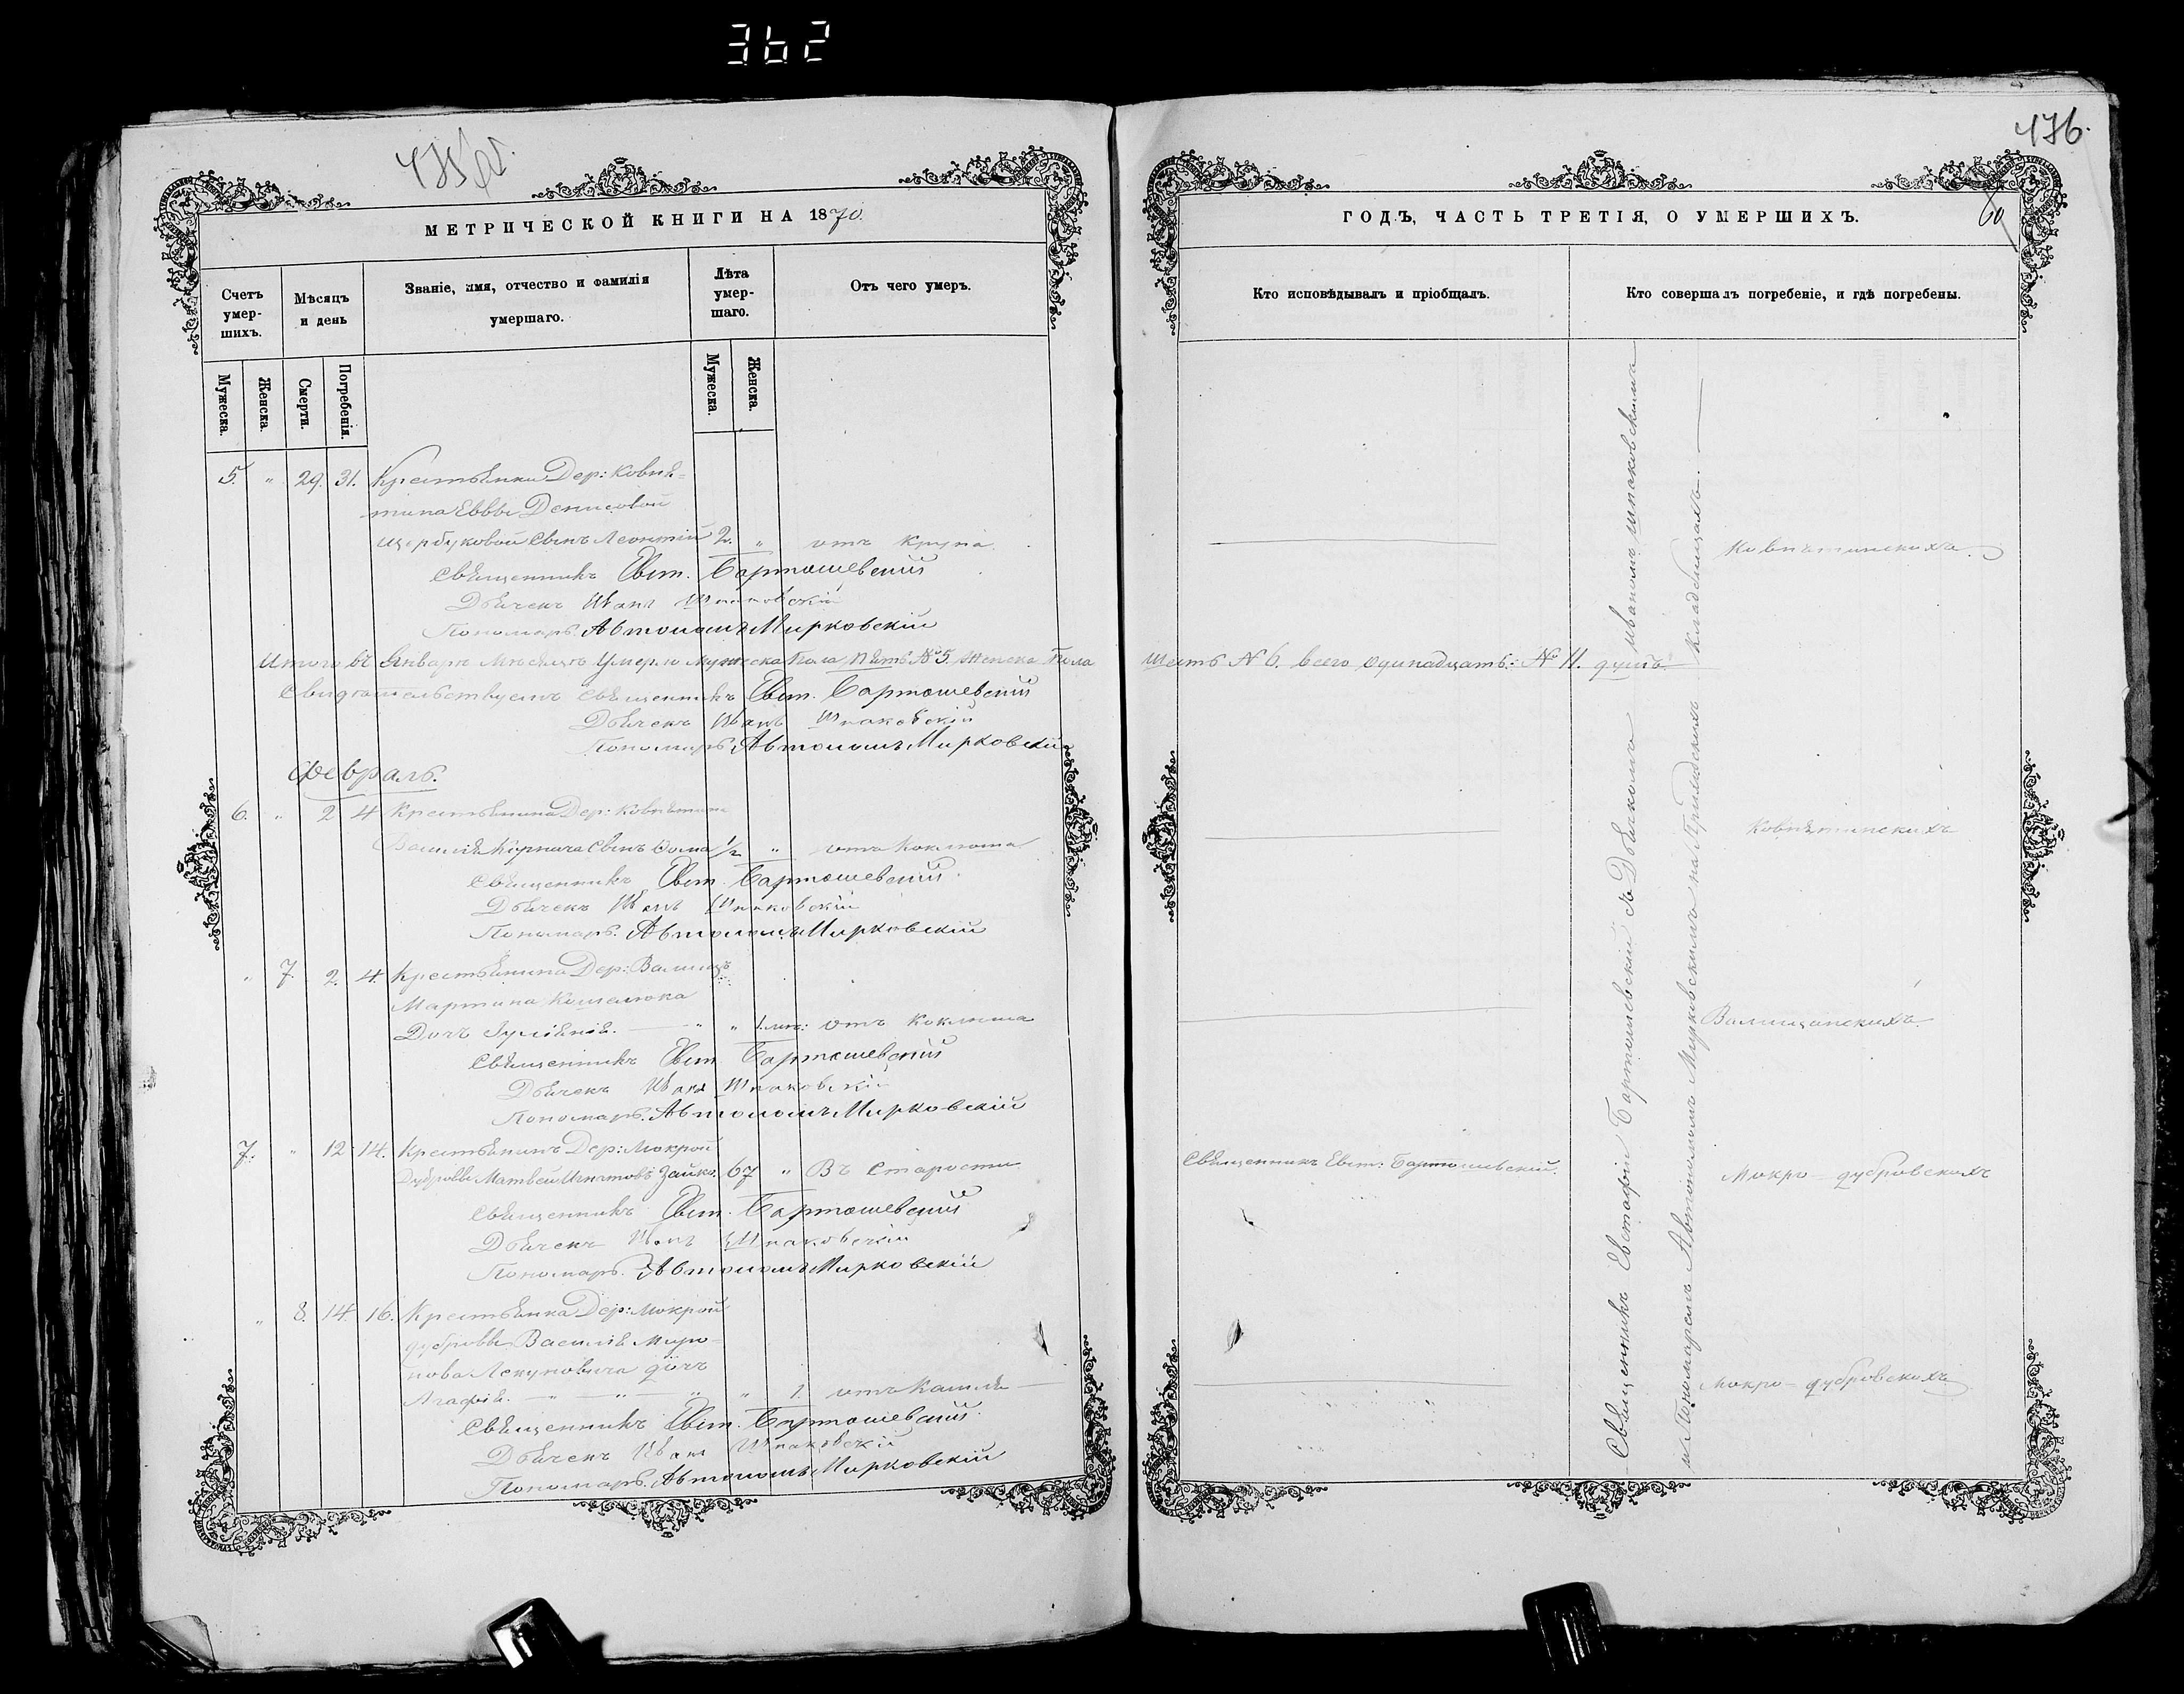 362
475 об.
МЕТРИЧЕСКОЙ КНИГИ НА 1870.
Счетъ умер-
шихъ.
Мѣсяцъ
и день
Званіе, имя, отчество и фамилія
умершаго.
Лѣта
умер-
шаго.
Отъ чего умеръ.
Мужеска.
Женска.
Смерти.
Погребенія.
Мужеска.
Женска.
5. " 29. 31. Крестьянки Дер: Ковня=
тина Еввы Денисовой
Щербуковой Сынъ Леонтій 2. " отъ крупа
Священникъ Евст. Бартошевскій
Дьячекъ Иванъ Шпаковскій
Пономарь Автономъ Мирковскій
Итого въ Январѣ Мѣсяцѣ Умерло мужеска Пола Пять №5. Женска Пола
Свидѣтельствуемъ Священникъ Евст. Бартошевскій
Дьячекъ Иванъ Шпаковскій
Пономарь Автономъ Мирковскій
Февраль.
6. " 2 4 Крестьянина Дер: Ковнятина
Василія Сынъ Фома 1/2 " отъ Коклюша
Священникъ Евст. Бартошевскій
Дьячекъ Иванъ Шпаковскій
Пономарь. Автономъ Мирковскій
" 7. 2. 4. Крестьянина Дер: Валищъ
Мартина Кошелюка
Дочь Іуліянія. " " 1. отъ Коклюша
Священникъ Евст Бартошевскій
Дьячекъ Иванъ Шпаковскій
Пономарь. Автономъ Мирковскій
7. " 12 14. Крестьянинъ Дер: Мокрой
Дубровы Матвей Игнатовъ Зайко. 67 " Въ Старости
Священникъ Евст. Бартошевскій
Дьячекъ Иванъ Шпаковскій
Пономарь. Автономъ Мирковскій
" 8. 14. 16. Крестьянка Дер: Мокрой
дубровы Василія Миро-
нова дочь
Агафія. " " " " 1. отъ Кашля
Священникъ Евст. Бартошевскій
Дьячекъ Иванъ Шпаковскій
Пономарь. Автономъ Мирковскій
476.
60
ГОДЪ, ЧАСТЬ ТРЕТІЯ, О УМЕРШИХЪ.
Кто исповѣдывалъ и пріобщалъ.
Кто совершалъ погребеніе, и гдѣ погребены.
Ковнятинскихъ.
Шесть № 6. всего одинадцать: № 11. душъ
Ковнятинскихъ
Валищанскихъ.
Священникъ Евст: Бартошевскій.
Мокро-дубровскихъ
Мокро-дубровскихъ
Священникъ Евстафій Бартошевскій съ Дьячкомъ Иваномъ Шпаковскимъ
и Пономаремъ Автономомъ Мирковскимъ на Приходскихъ кладбищахъ.